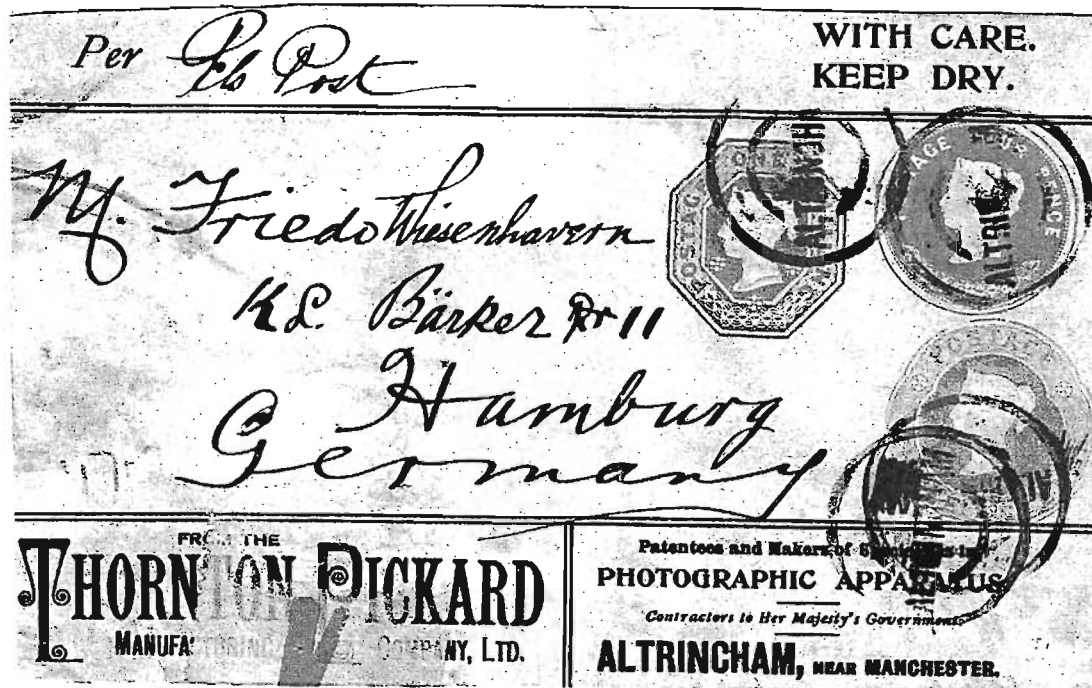 Per Pcls Post
WITH CARE.
KEEP DRY.
M. Friedo Wiesenhavern
Kl. Bärker Nr 11
Hamburg
Germany
ONE
POSTAGE FOUR PENCE
ALTRIN
POSTAGE
FROM THE
THORNTON PICKARD
MANUFACTURING COMPANY, LTD.
Patentees and Makers of Specialties in
PHOTOGRAPHIC APPARATUS
Contractors to Her Majesty's Government.
ALTRINCHAM, NEAR MANCHESTER.